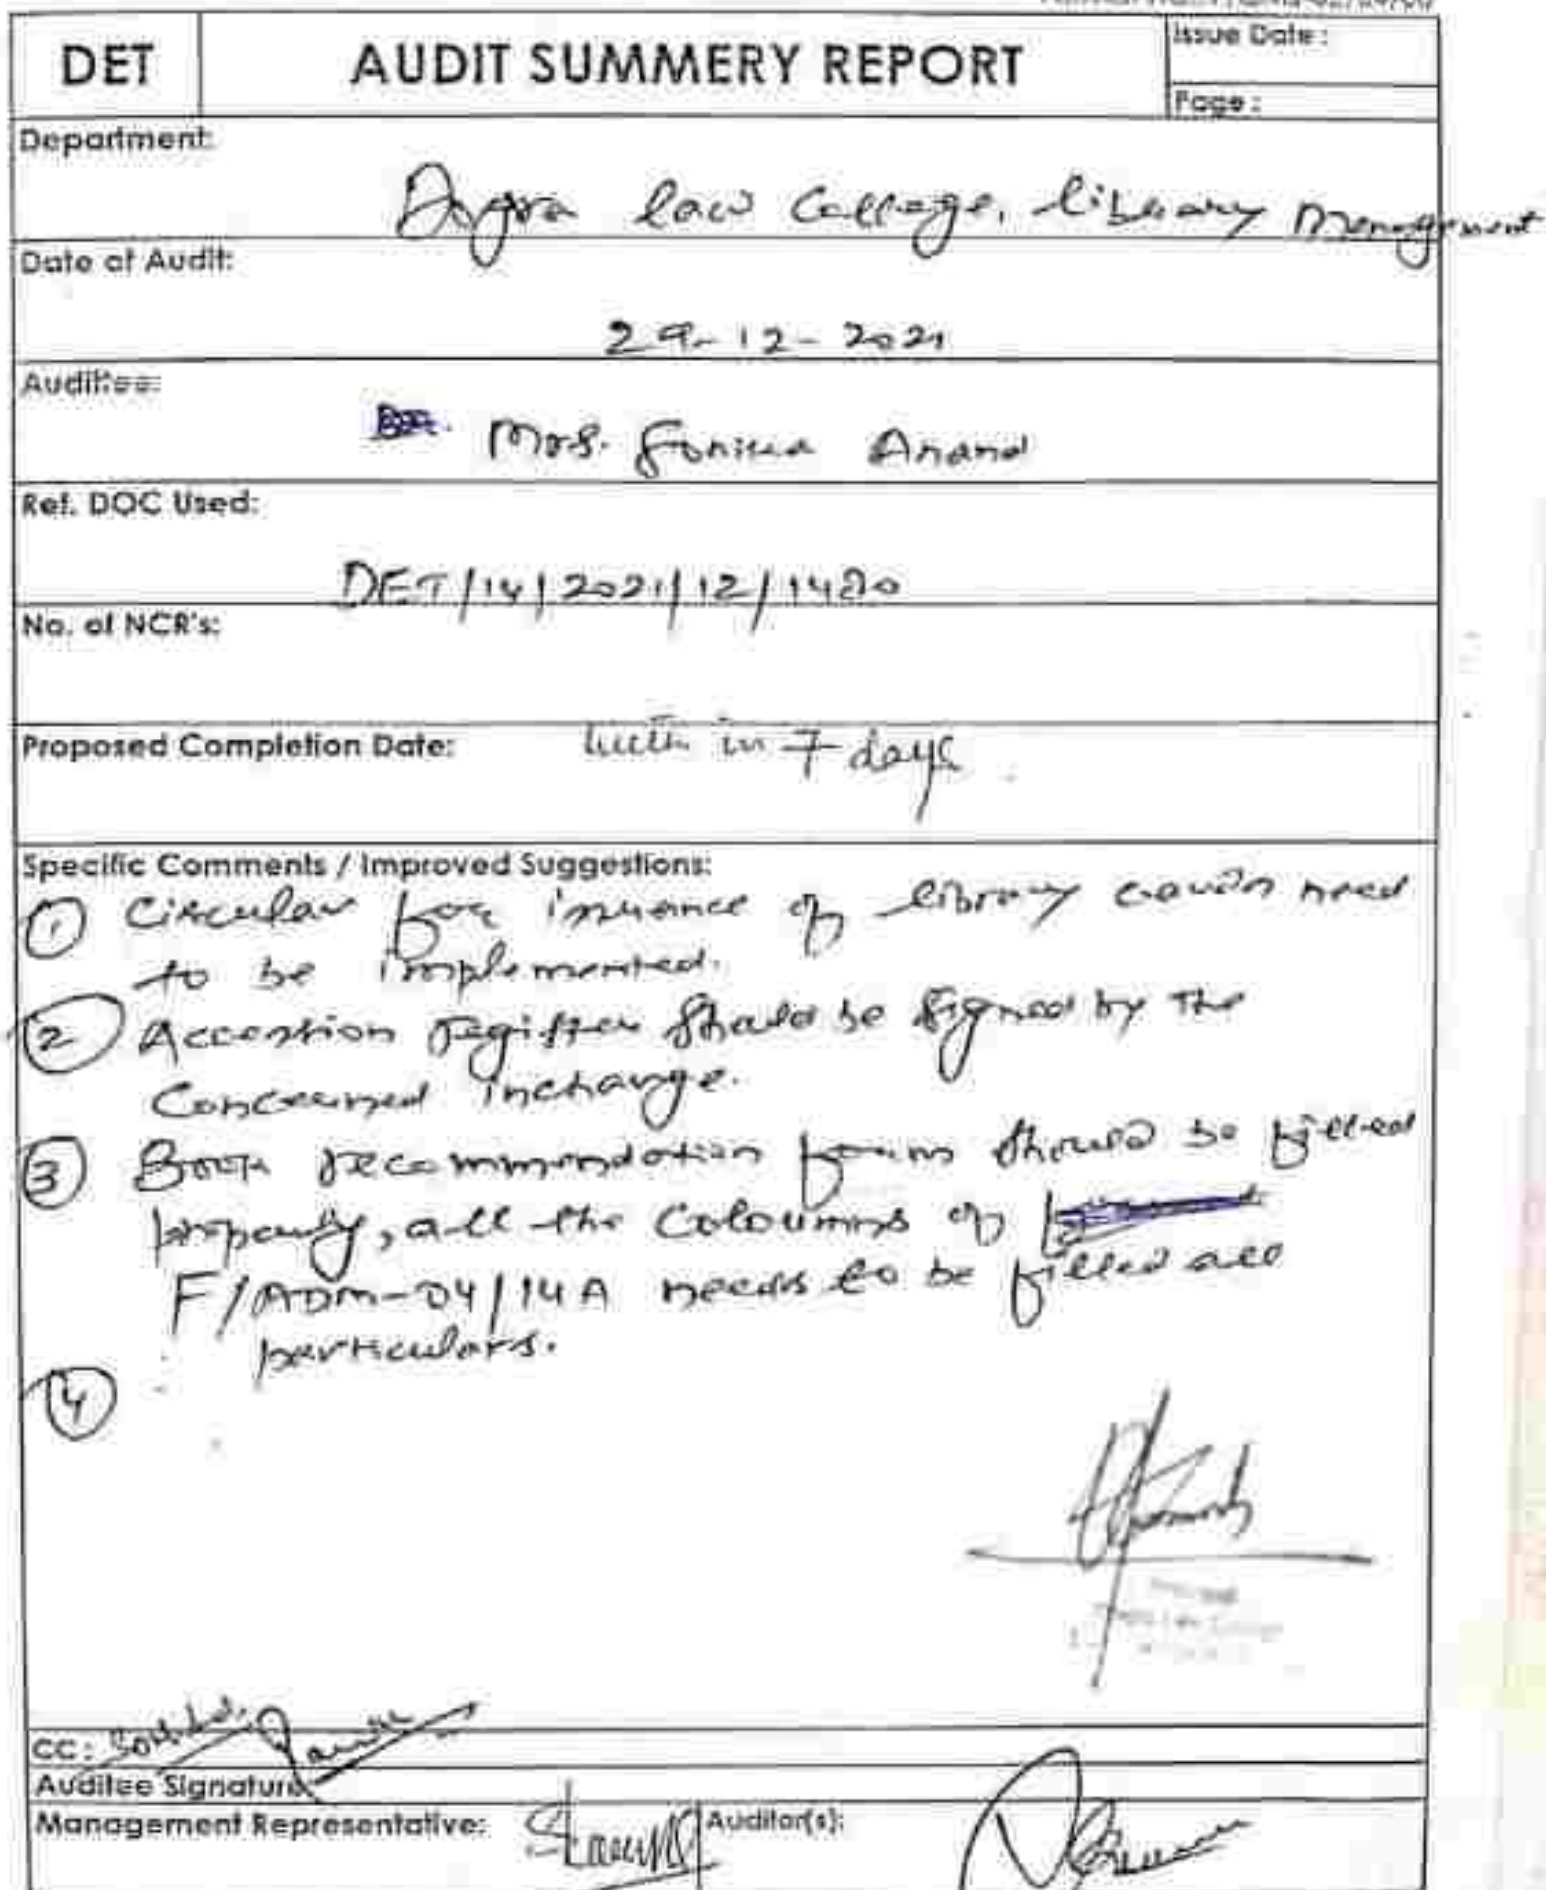 DET
AUDIT SUMMERY REPORT
Issue Date :
Page :
Department:
Dogra law College, library Management
Date of Audit:
29-12-2021
Auditee:
Mrs. Anand
Ref. DOC Used:
DET/14/2021/12/1480
No. of NCR's:
Proposed Completion Date: with in 7 days
Specific Comments / Improved Suggestions:
① Circular for issuance of library need
to be implemented.
② Accession register should be signed by the
Concerned incharge.
③ Book recommendation form should be filled
properly, all the Coloumns of
F/ADM-04/14A needs to be filled all
particulars.
④
CC:
Auditee Signature
Management Representative:
Auditor(s):